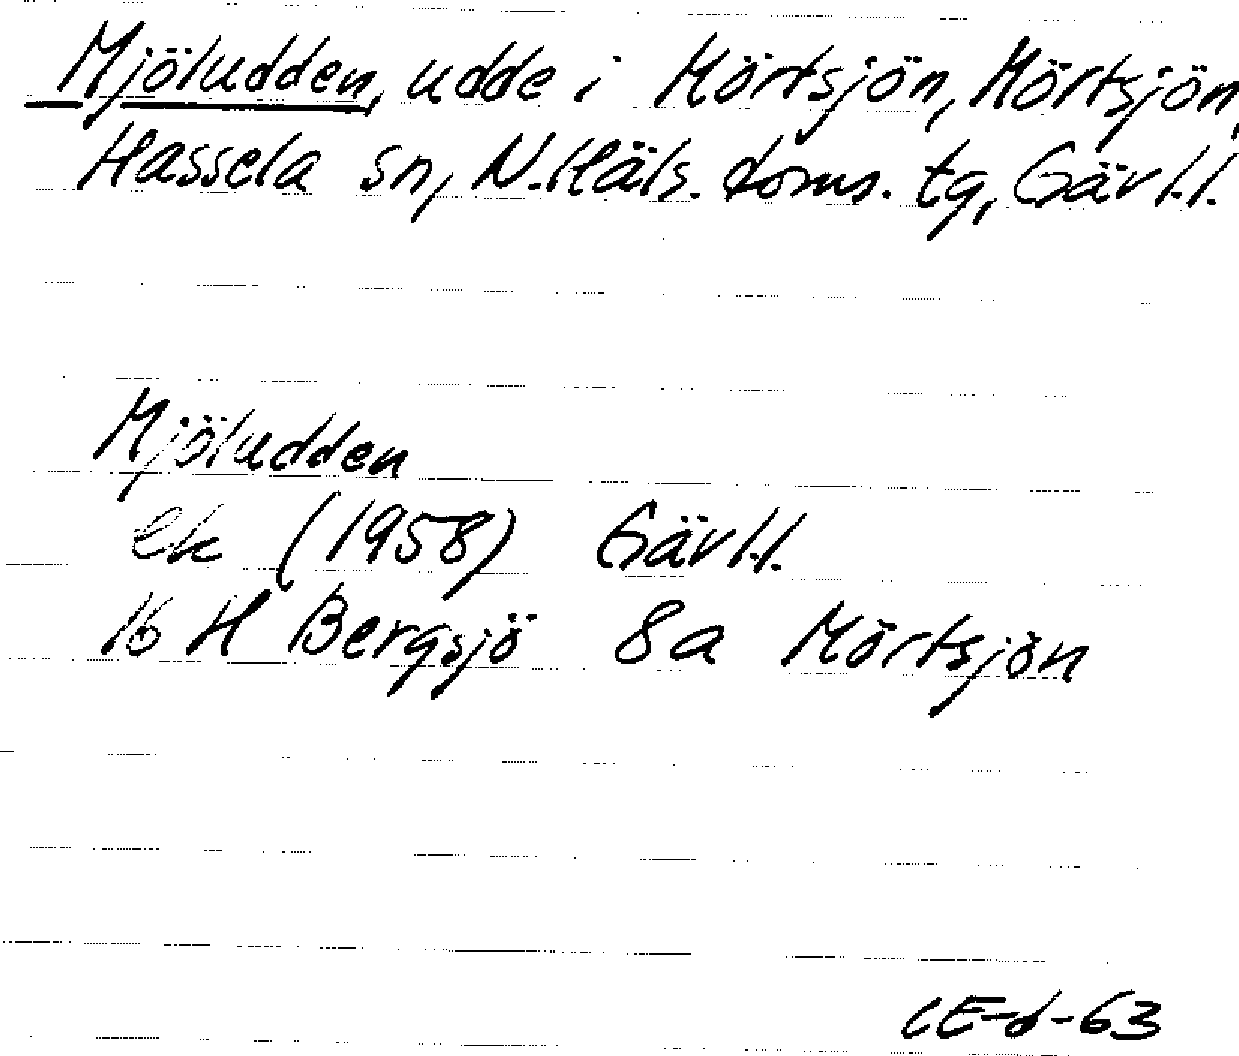 Mjöludden, udde i Mörtsjön, Mörtsjön,
Hassela sn, N. Häls. doms. tg, Gävl.l.
Mjöludden
ek (1958) Gävl.l.
16 H Bergsjö 8a Mörtsjön
CE-d-63